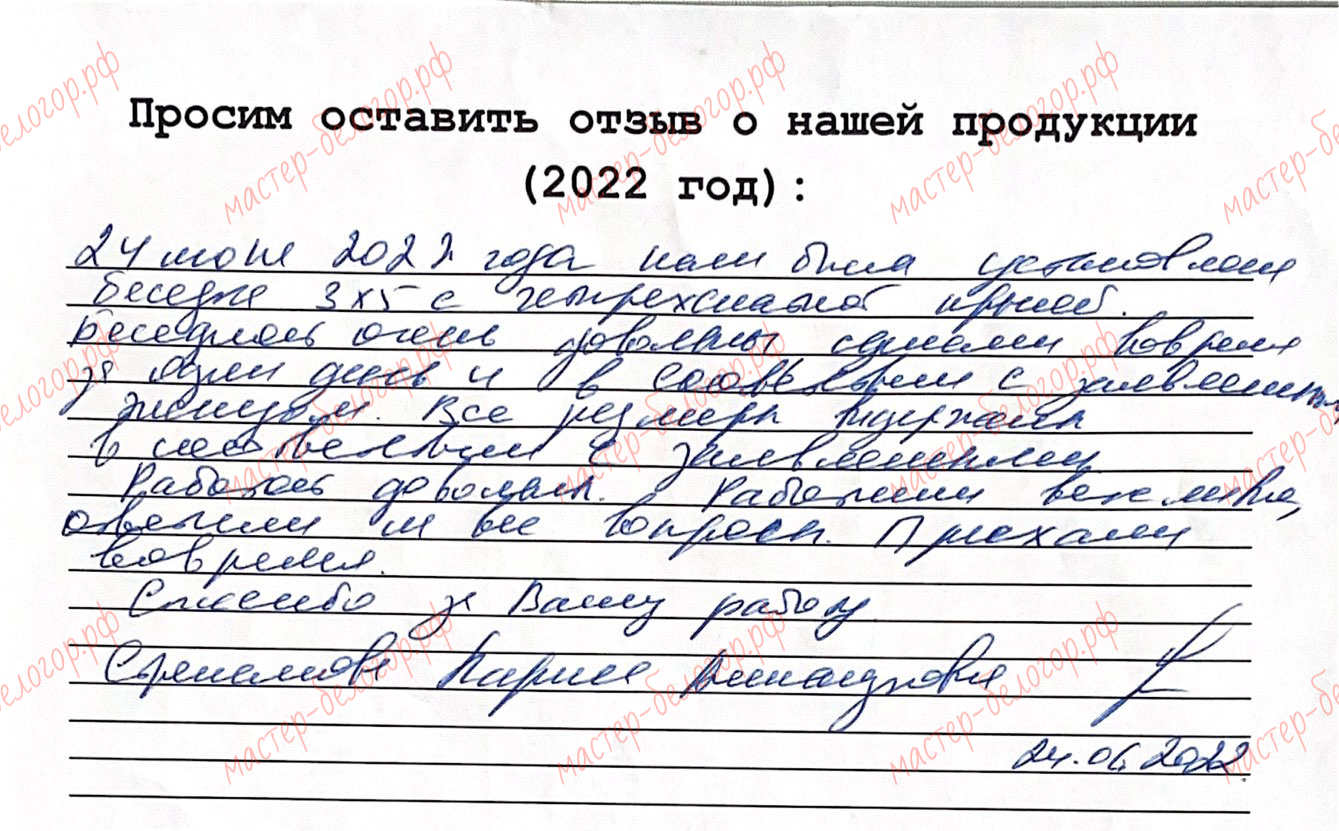 Просим оставить отзыв о нашей продукции
(2022 год):
24 июня 2022 года нами была установлена
беседка 3х5 с четырехскатной крышей.
Беседкой очень довольны сделали вовремя
за один день и в соответствии с заявленным
эскизом. Все размеры выдержаны
в соответствии с заявленными
Работой довольны. Работники вежливые,
ответили на все вопросы. Приехали
вовремя.
Спасибо за Вашу работу
Лариса
24.06.2022
мастер-белогор.рф